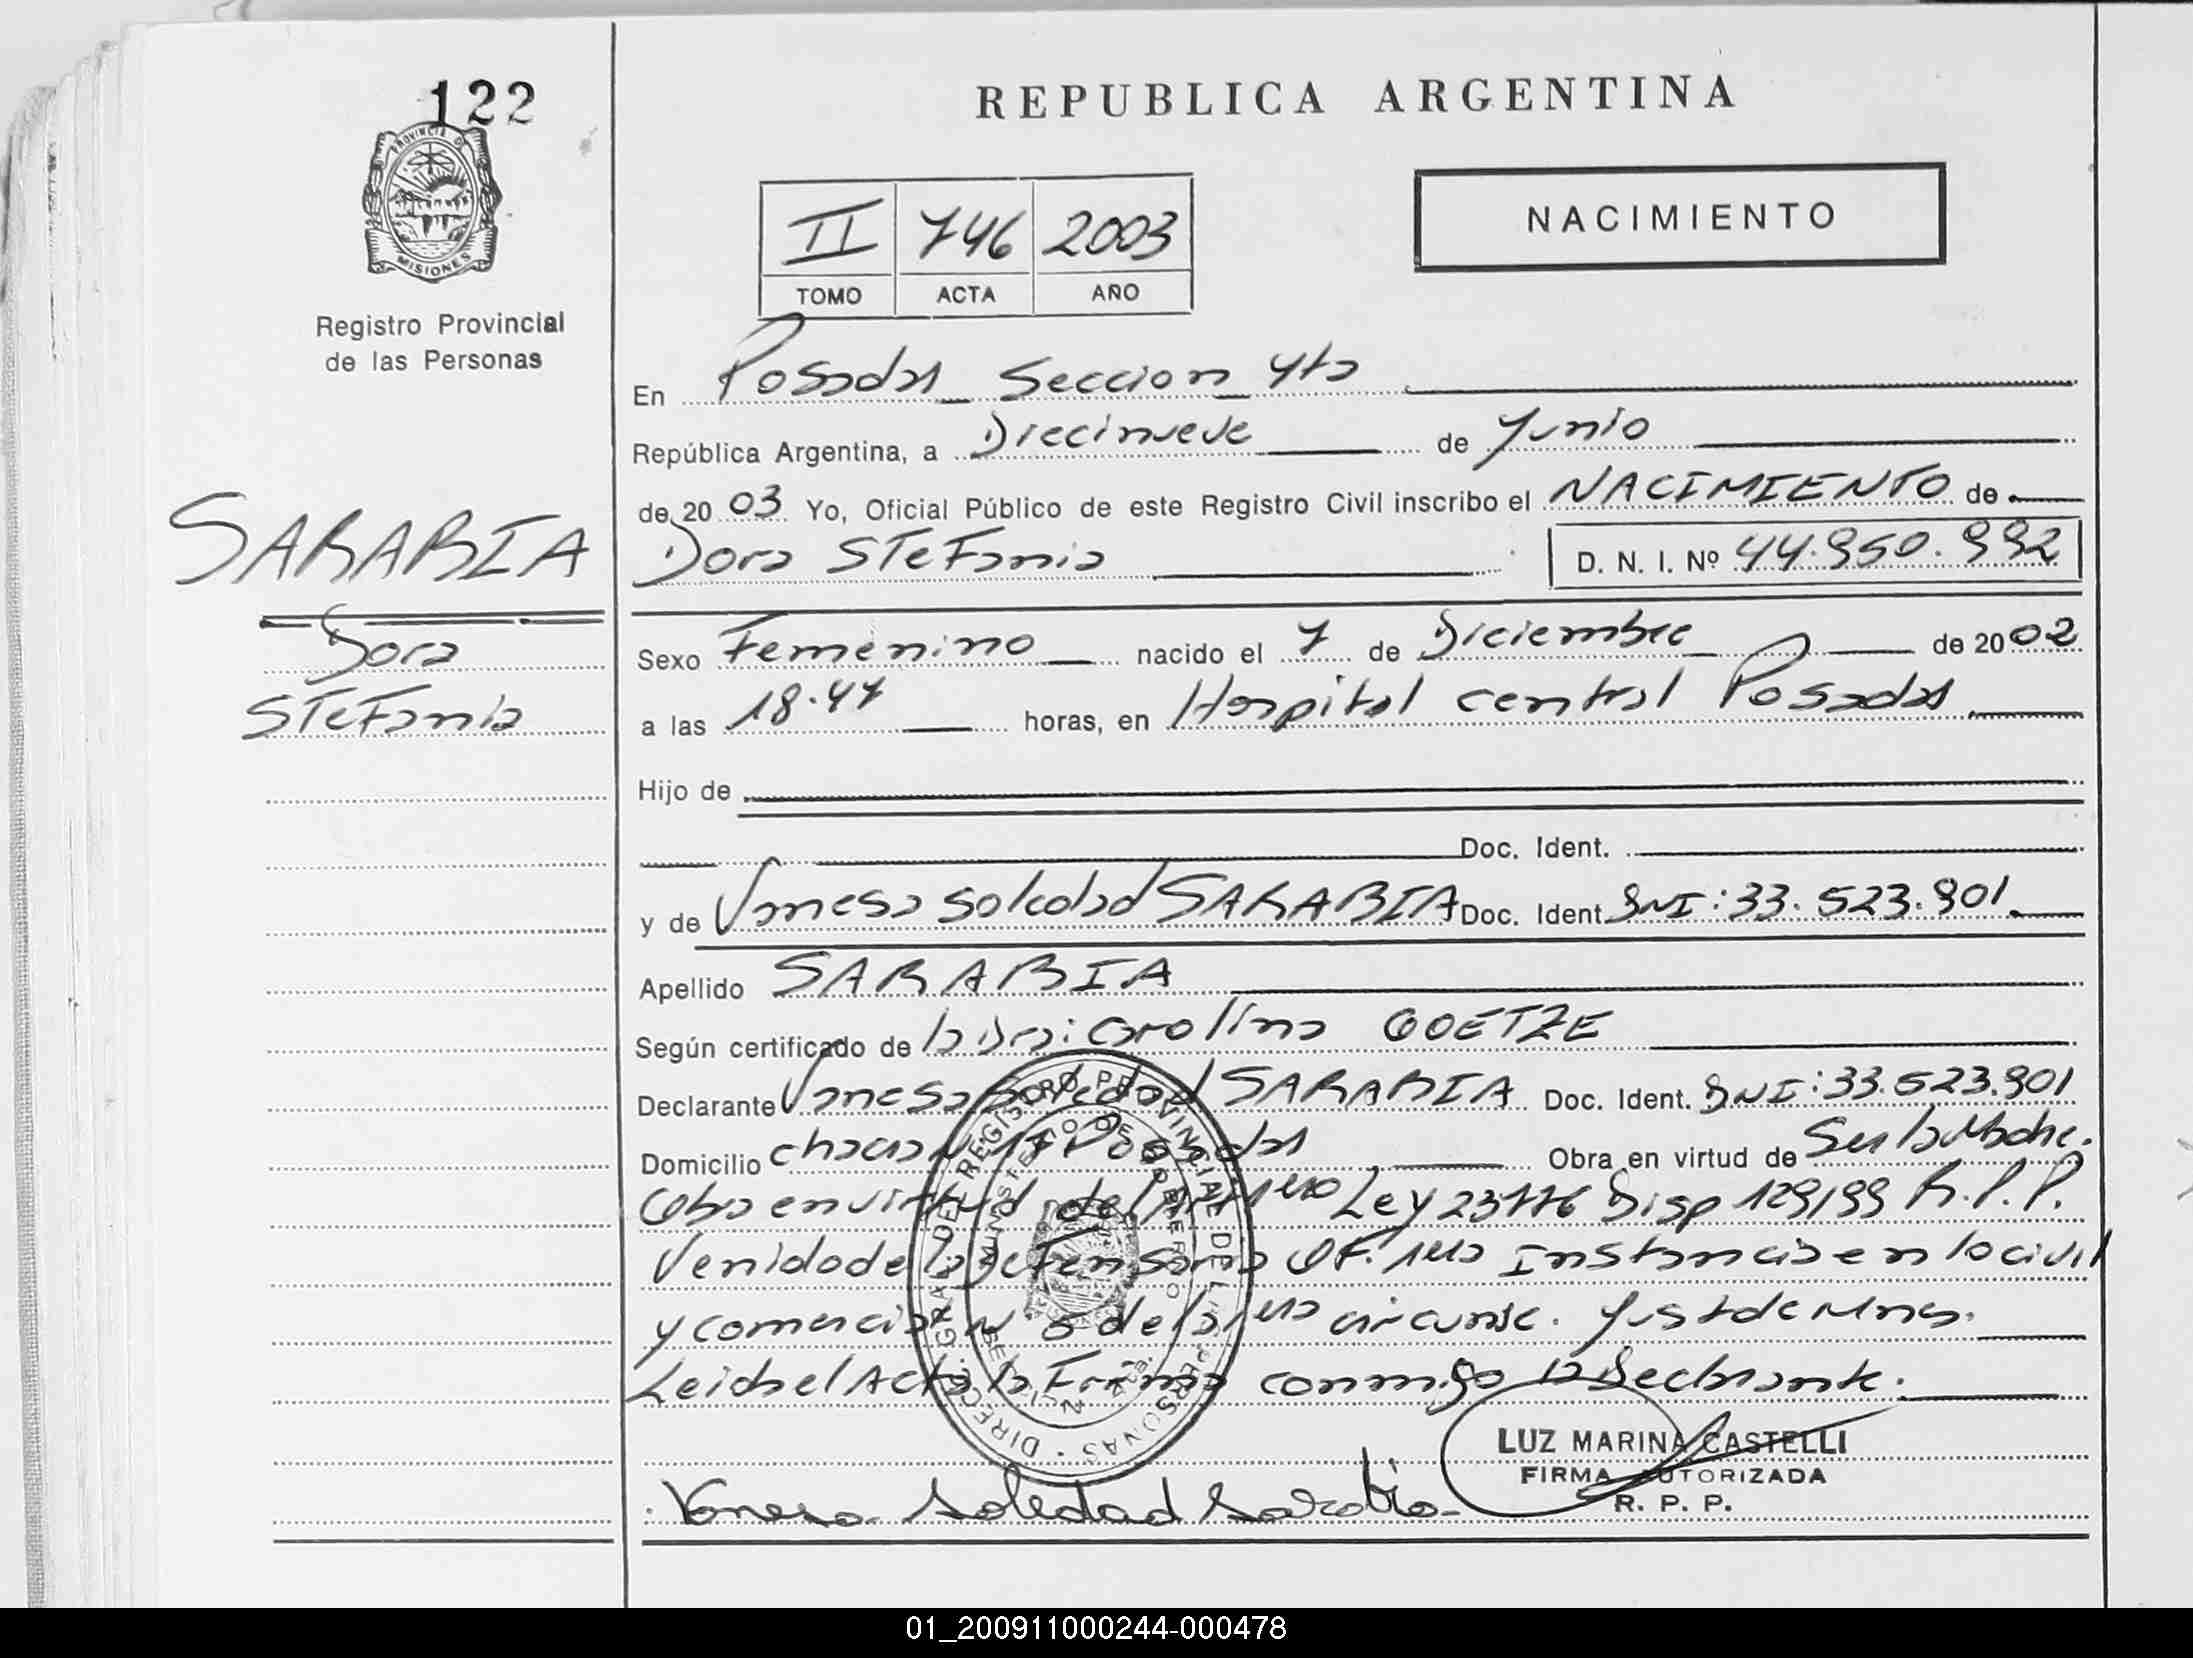 122
PROVINCIA DE
MISIONES
Registro Provincial
de las Personas
SARABIA
Dora
Stefania
REPUBLICA ARGENTINA
II 746 2003
TOMO ACTA AÑO
NACIMIENTO
En Posadas Seccion 4ta
República Argentina, a Diecinueve de Junio
de 20 03 Yo, Oficial Público de este Registro Civil inscribo el NACIMIENTO de
Dora Stefania D. N. I. Nº 44.950.992
Sexo Femenino nacido el 7 de Diciembre de 20 02
a las 18.47 horas, en Hospital central Posadas
Hijo de
Doc. Ident.
y de Vanesa Soledad SARABIA Doc. Ident. DNI: 33.523.901.
Apellido SARABIA
Según certificado de la Dra: Carolina GOETZE
Declarante Vanesa Soledad SARABIA Doc. Ident. DNI: 33.523.901
Domicilio chacra Posadas Obra en virtud de Ser la Madre.
Obra en virtud del Ley 23776 Disp 129/99 R.P.P.
Venido de la Defensoria Of. 1era Instancia en lo civil
y comercial N de la 1era circunsc. Just de Mnes.
Leida el Acta la Firma conmigo la Declarante.
LUZ MARINA CASTELLI
FIRMA AUTORIZADA
R. P. P.
Vanesa Soledad Sarabia
01_200911000244-000478